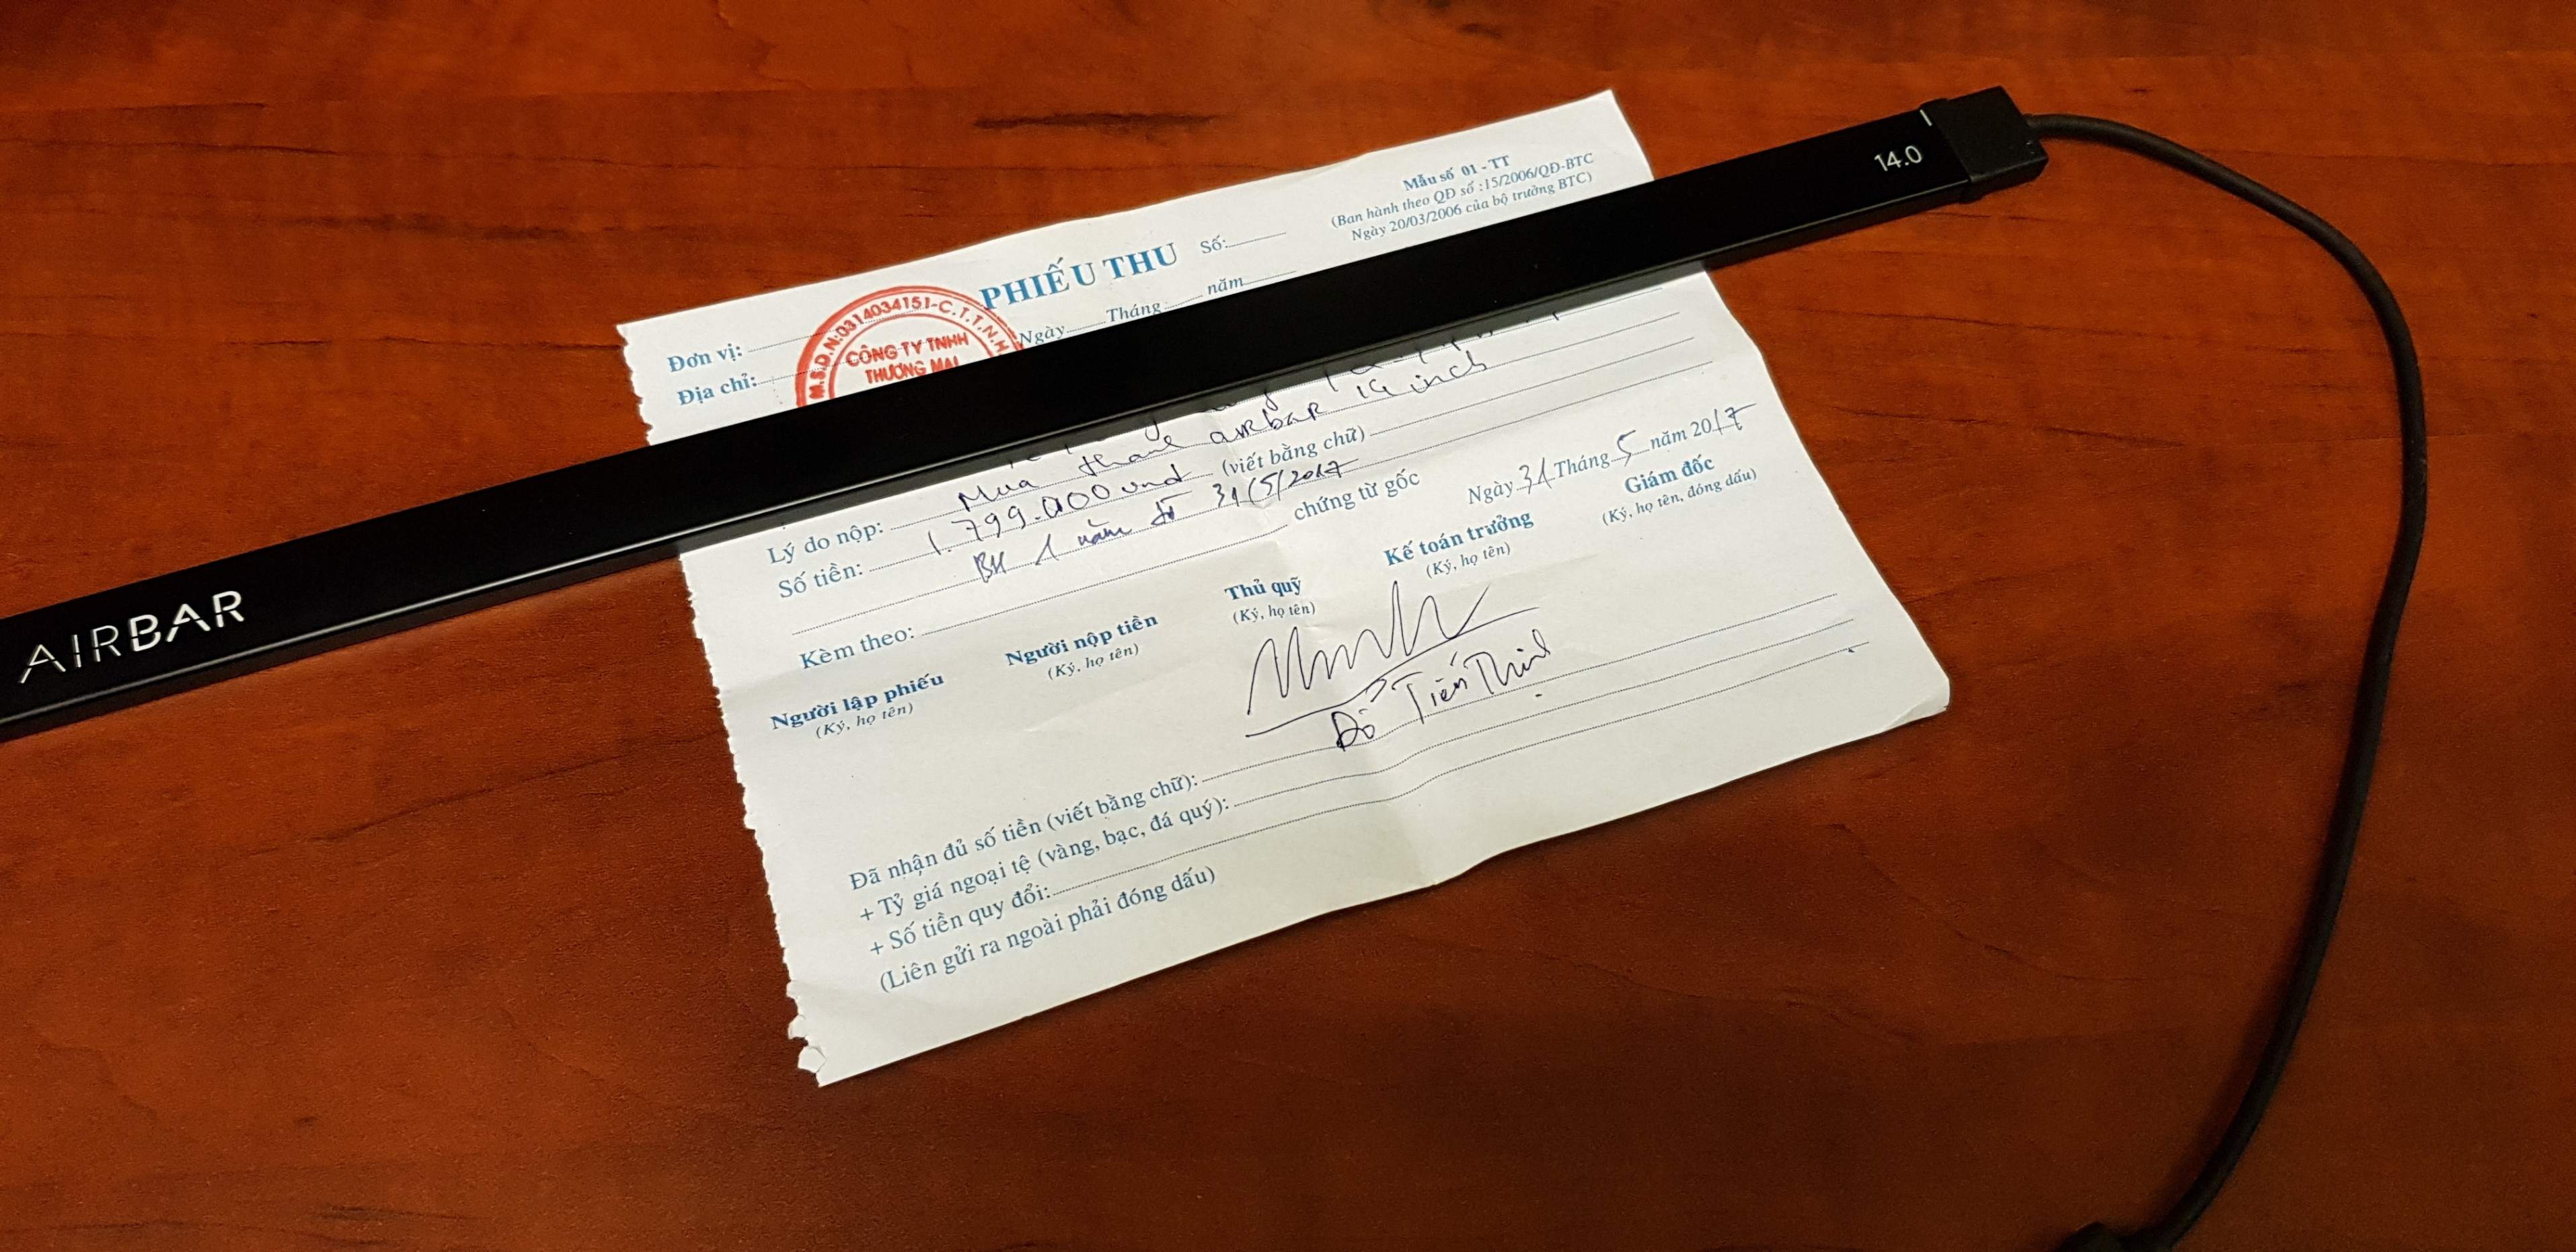 Mẫu số 01 - TT
(Ban hành theo QĐ số :15/2006/QĐ-BTC
Ngày 20/03/2006 của bộ trưởng BTC)
PHIẾU THU Số:
Ngày Tháng năm
Đơn vị:
Địa chỉ:
M.S.D.N:0314034151-C.T.T.N.H
CÔNG TY TNHH
THƯƠNG MẠI
14.0
AIRBAR
Lý do nộp: Mua thanh airbar 14 inch
Số tiền: 1.799.000 vnd (viết bằng chữ)
BH 1 năm từ 31/5/2017
Kèm theo: chứng từ gốc
Ngày 31 Tháng 5 năm 2017
Người lập phiếu
(Ký, họ tên)
Người nộp tiền
(Ký, họ tên)
Thủ quỹ
(Ký, họ tên)
Kế toán trưởng
(Ký, họ tên)
Giám đốc
(Ký, họ tên, đóng dấu)
Đỗ Tiến Thịnh
Đã nhận đủ số tiền (viết bằng chữ):
+ Tỷ giá ngoại tệ (vàng, bạc, đá quý):
+ Số tiền quy đổi:
(Liên gửi ra ngoài phải đóng dấu)